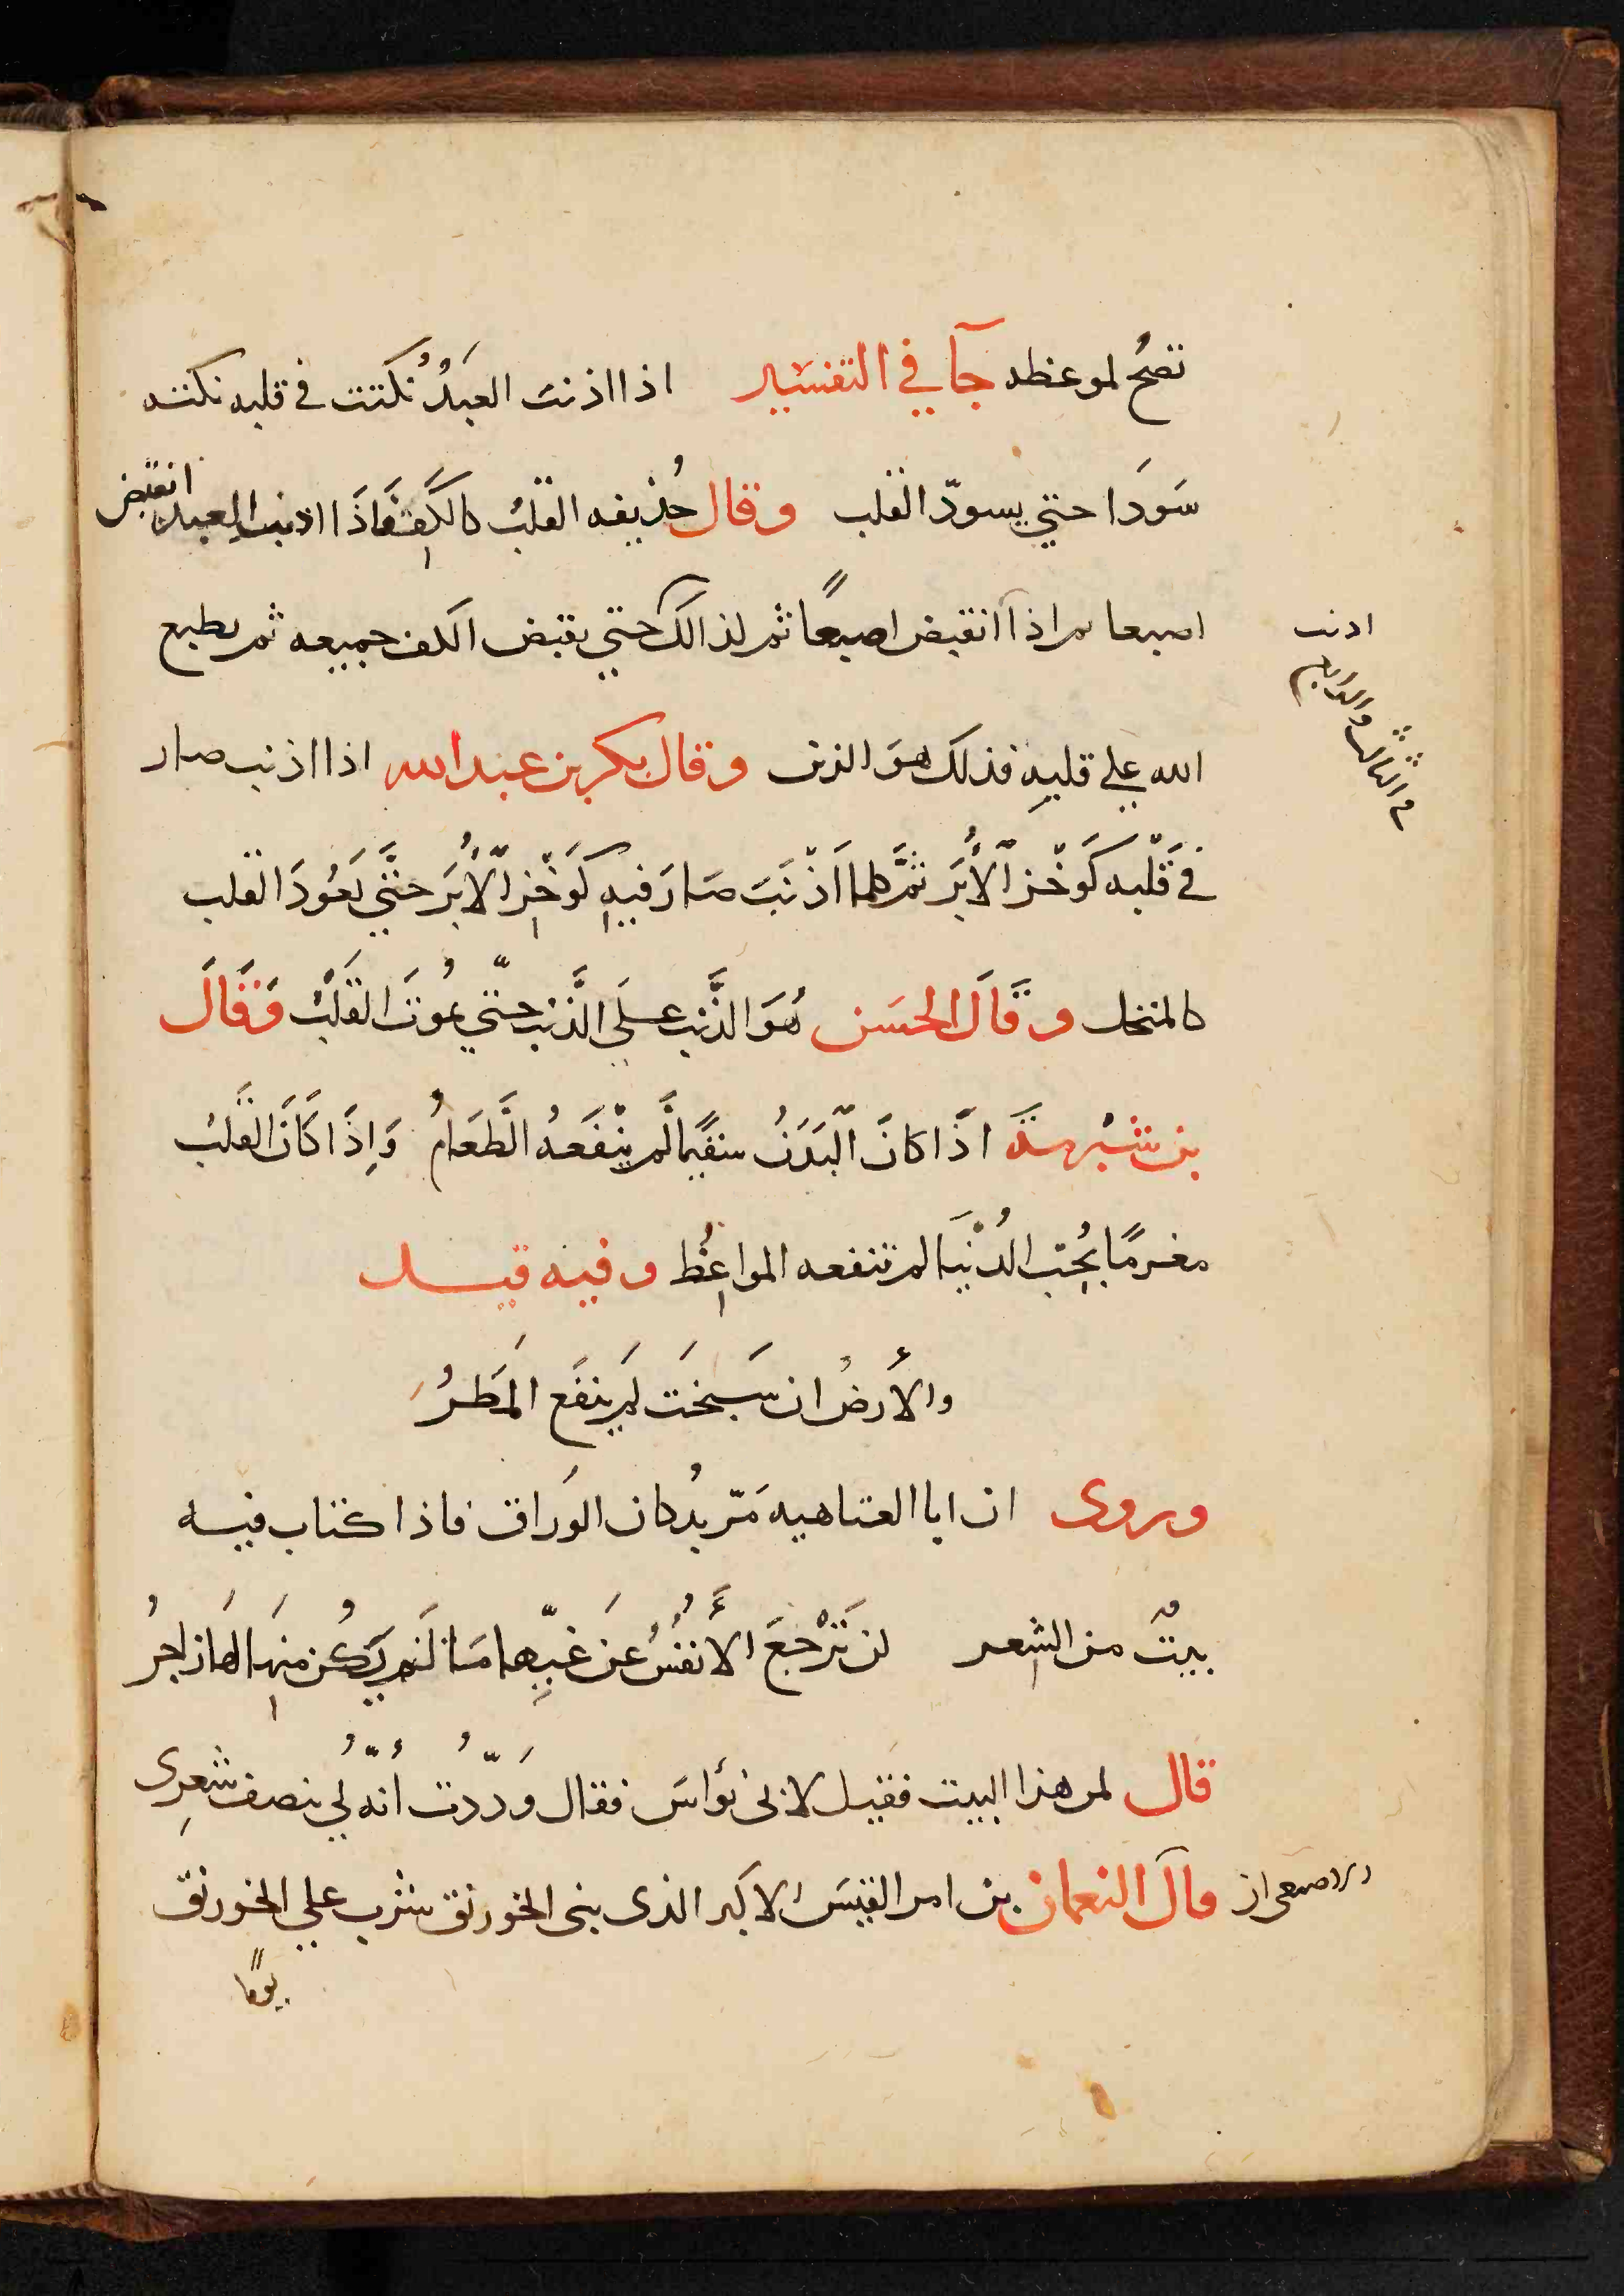 تصحُ لموعظه جآ في التفسير اذا اذنب العبدُ نُكتت في قلبه نكته
سَودَا حتي يسودّ القلب وقال حُذيفه القلبُ كالكَفِ فَاذَا اذنب العبد انقبض
اصبعا ثم اذا اذنب انقبض اصبعًا ثم لذالك حتي يقبض الكف جميعه ثم يطبع
الله علي قلبهِ فذلك هوَ الرين وقال بكر بن عبد الله اذا اذنب صار
في قَلْبه كَوَخْز الْأبَر ثمَّ كلما اَذْنَبَ صَارَ فيهِ كوَخْزِ الْأُبَر حتَّي يَعُودَ القلب
كالمنخل وقَالَ الحسَن هُوَ الذَّنب علَي الذَّنب حتّي يموُتَ القَلْبُ وَقَالَ
بن شبْرمة اذَا كانَ الْبَدَنُ سقيمًا لَم ينْفَعهُ الطَعَامُ وَاِذَا كَانَ القَلبُ
مغرمًا بحُبِ الدُنْيَا لم تنفعه المواعِظُ وفيه قيل
والأرضُ ان سَبخَت لَم ينفَع المَطرُ
وروى ان ابا العتاهيه مَرّ بدُكان الوَراق فاذا كتاب فيه
بيتٌ من الشِعر لن تَرْجعَ الأنفُسُ عَن غيِّها مَا لَم يَكُن منهَا لهَا زاجرُ
قال لمن هذا البيت فقيل لابى نُواسَ فقال وَددّتُ أنّه لي بنصف شعرِى
الاصمعى ان قال النعمان بن امر القيسَ الاكبر الذى بنى الخورنق شرب علي الخورنق
يومًا